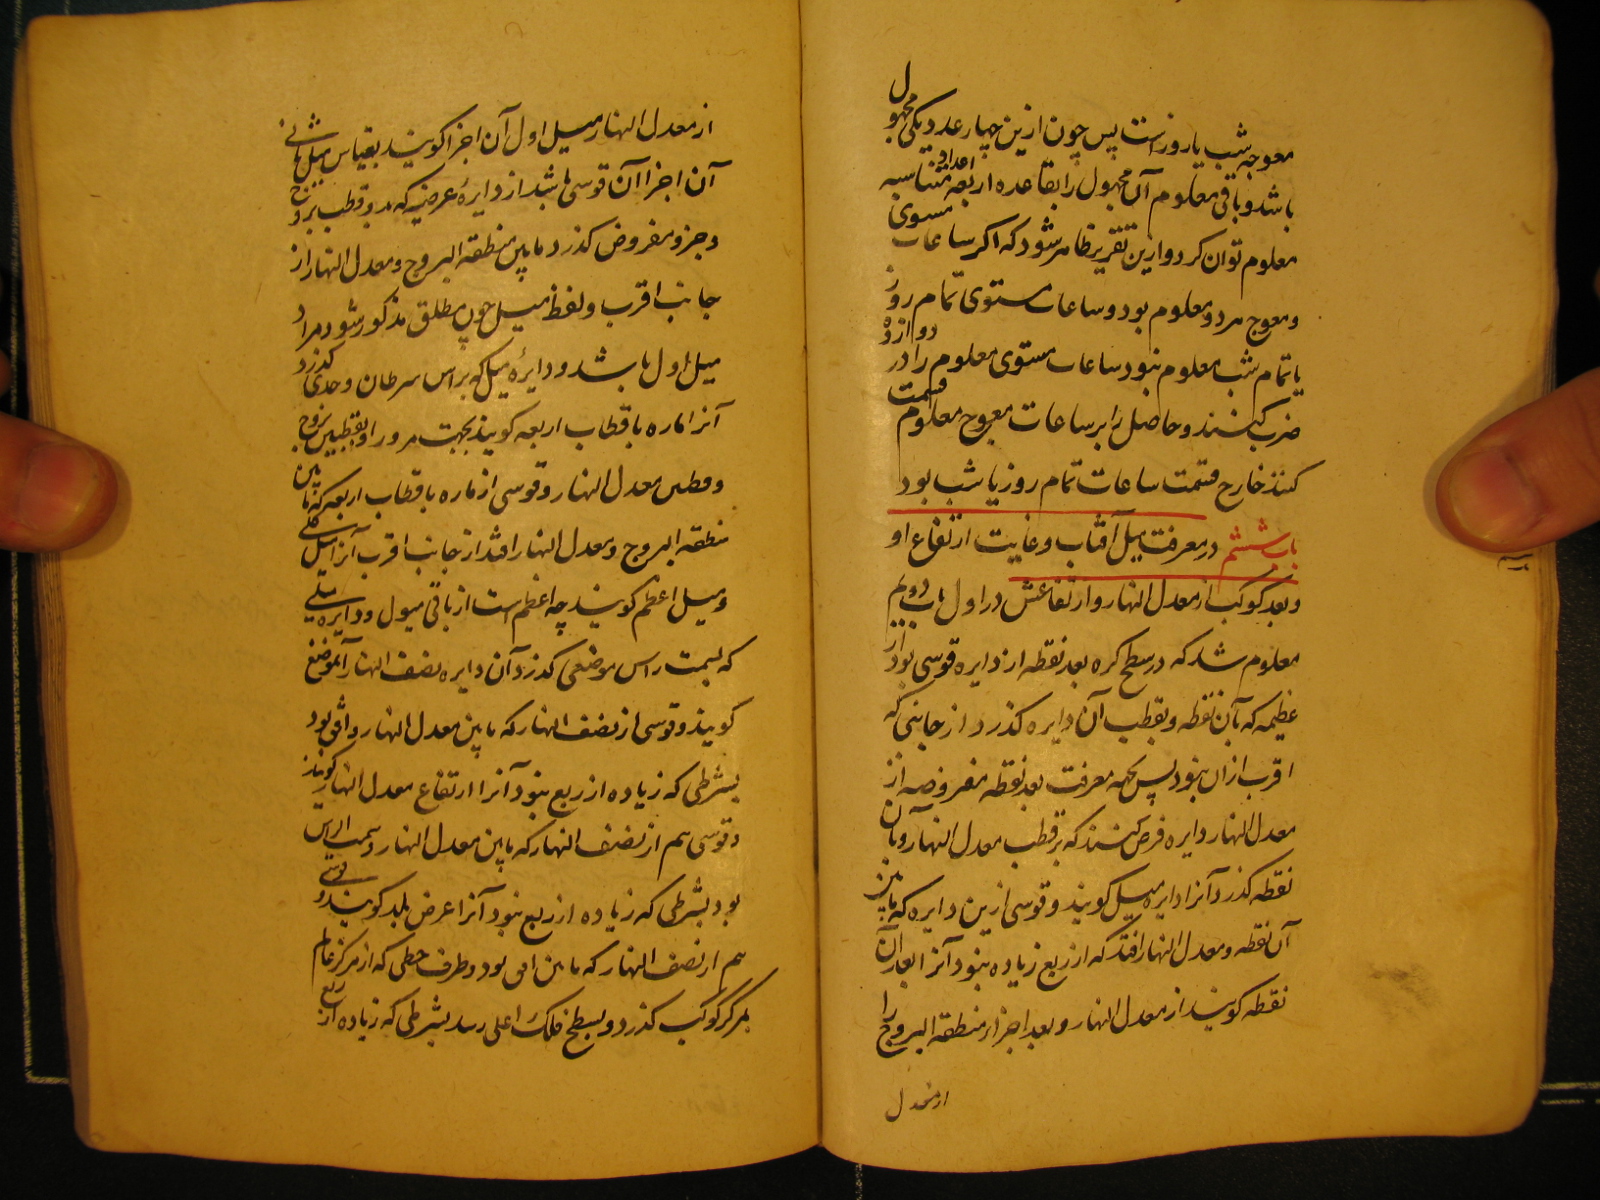 معوجه شب یا روز است پس چون ازین چهار عدد یکی مجهول
باشد و باقی معلوم آن مجهول را بقاعده اربعه اعداد متناسبه
معلوم توان کرد و ازین تقریر ظاهر شود که اگر ساعات مستوی
و معوج هر دو معلوم بود و ساعات مستوی تمام روز
یا تمام شب معلوم نبود ساعات مستوی معلوم را در دوازده
ضرب کنند و حاصل را بر ساعات معوج معلوم قسمت
کنند خارج قسمت ساعات تمام روز یا شب بود
باب ششم در معرفت میل آفتاب و غایت ارتفاع او
و بعد کوکب از معدل النهار و ارتفاعش در اول باب دویم
معلوم شد که در سطح کره بعد نقطه از دایره قوسی بود از
عظیمه که بآن نقطه و بقطب آن دایره کذرد از جانبی که
اقرب ازان نبود پس بجهه معرفت بعد نقطه مفروضه از
معدل النهار دایره فرض کنند که بر قطب معدل النهار و بآن
نقطه کذرد آنرا دایره میل کویند و قوسی ازین دایره که مابین
آن نقطه و معدل النهار افتد که از ربع زیاده نبود آنرا بعد آن
نقطه کویند از معدل النهار و بعد اجزاء منطقه البروج را
از معدل
از معدل النهار میل اول آن اجزا کویند بقیاس میل ثانی
آن اجزا آن قوسی باشد از دایرهٔ عرضیه که بدو قطب بروج
و جزو مفروض کذرد مابین منطقه البروج و معدل النهار از
جانب اقرب و لفظ میل چون مطلق مذکور شود مراد
میل اول باشد و دایرهٔ میل که براس سرطان و جدی کذرد
آنرا ماره باقطاب اربعه کویند بجهت مرور او بقطبین بروج
و قطبین معدل النهار و قوسی از ماره باقطاب اربعه که مابین
منطقه البروج و معدل النهار افتد از جانب اقرب آنرا میل کلی
و میل اعظم کویند چه اعظم است از باقی میول و دایره میلی
که بسمت راس موضعی کذرد آن دایره نصف النهار آنموضع
کویند و قوسی از نصف النهار که مابین معدل النهار و افق بود
بشرطی که زیاده از ربع نبود آنرا ارتفاع معدل النهار کویند
و قوسی هم از نصف النهار که مابین معدل النهار و سمت الراس
بود بشرطی که زیاده از ربع نبود آنرا عرض بلد کویند و قوسی
هم از نصف النهار که مابین افق بود و طرف خطی که از مرکز عالم
بمرکز کوکب کذرد و بسطح فلک اعلی رسد بشرطی که زیاده از ربع